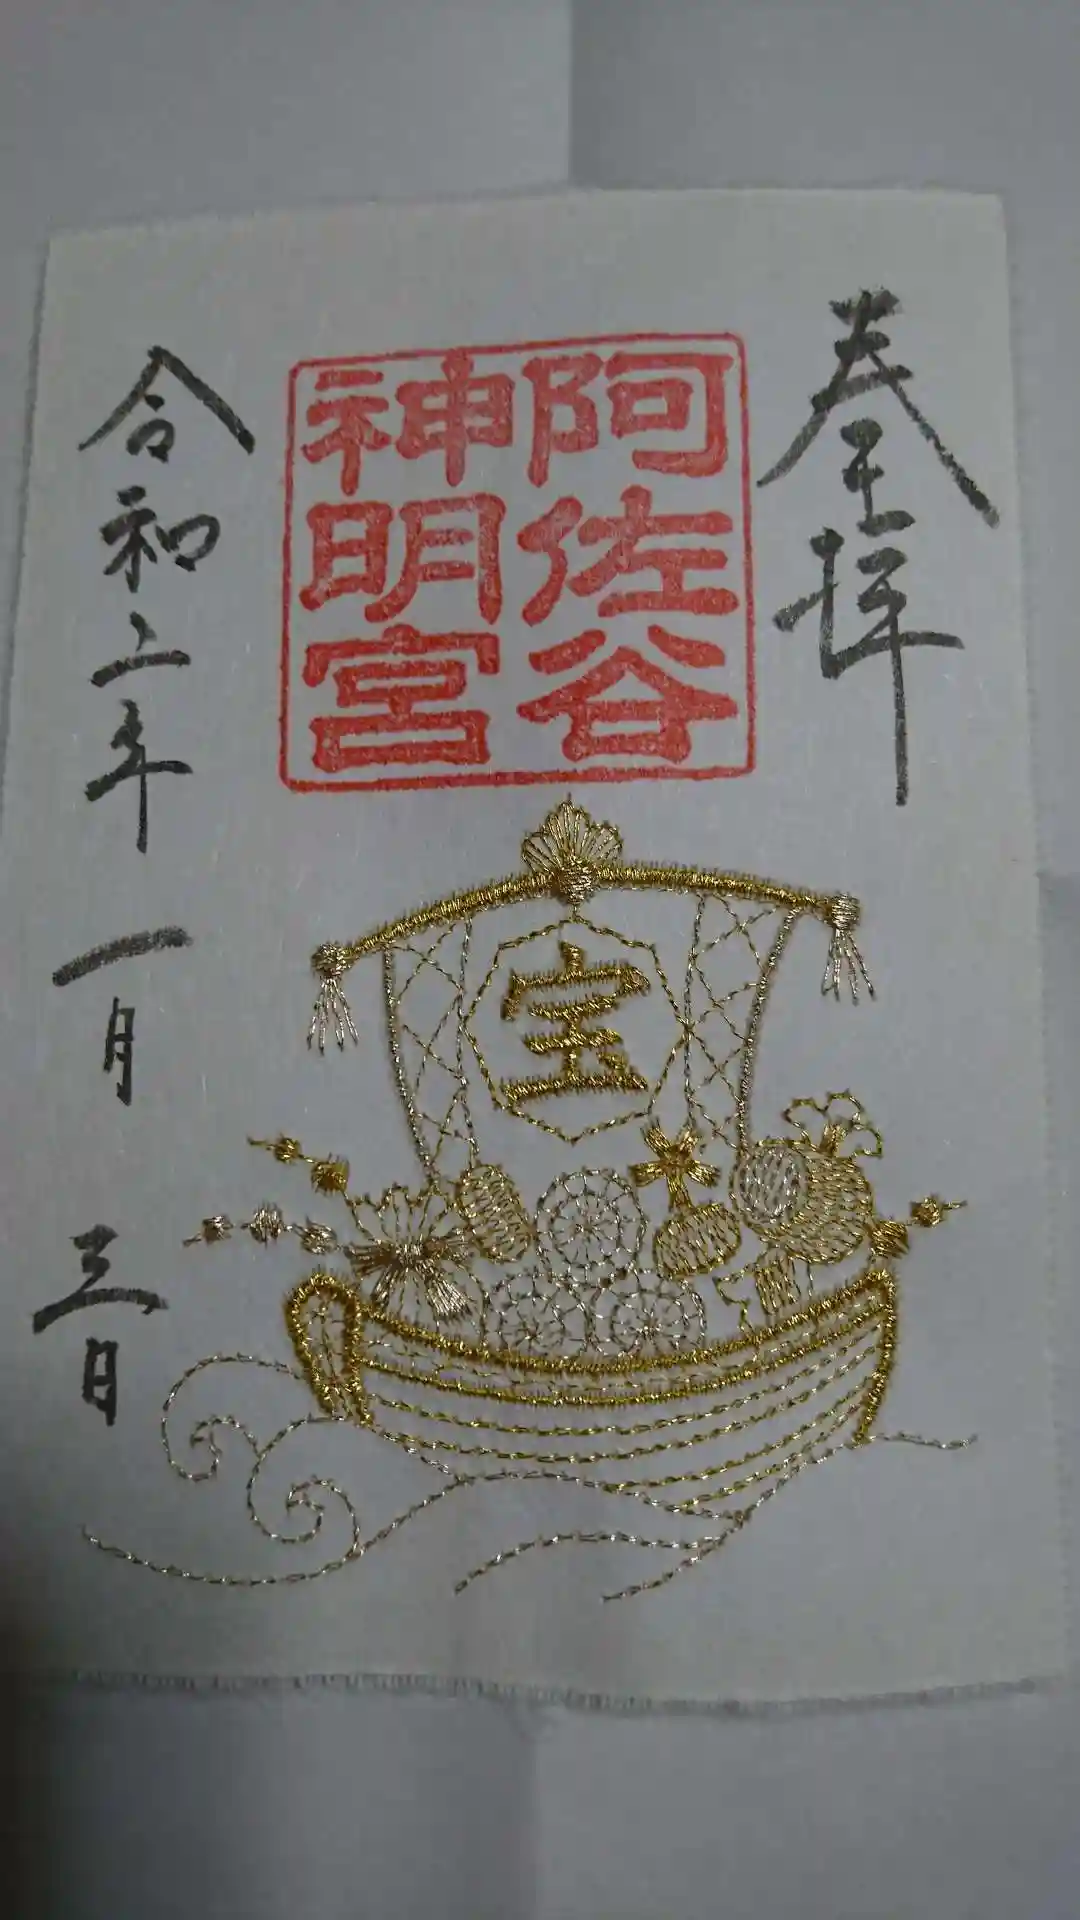 奉拝
阿佐谷
神明宮
宝
令和二年一月三日